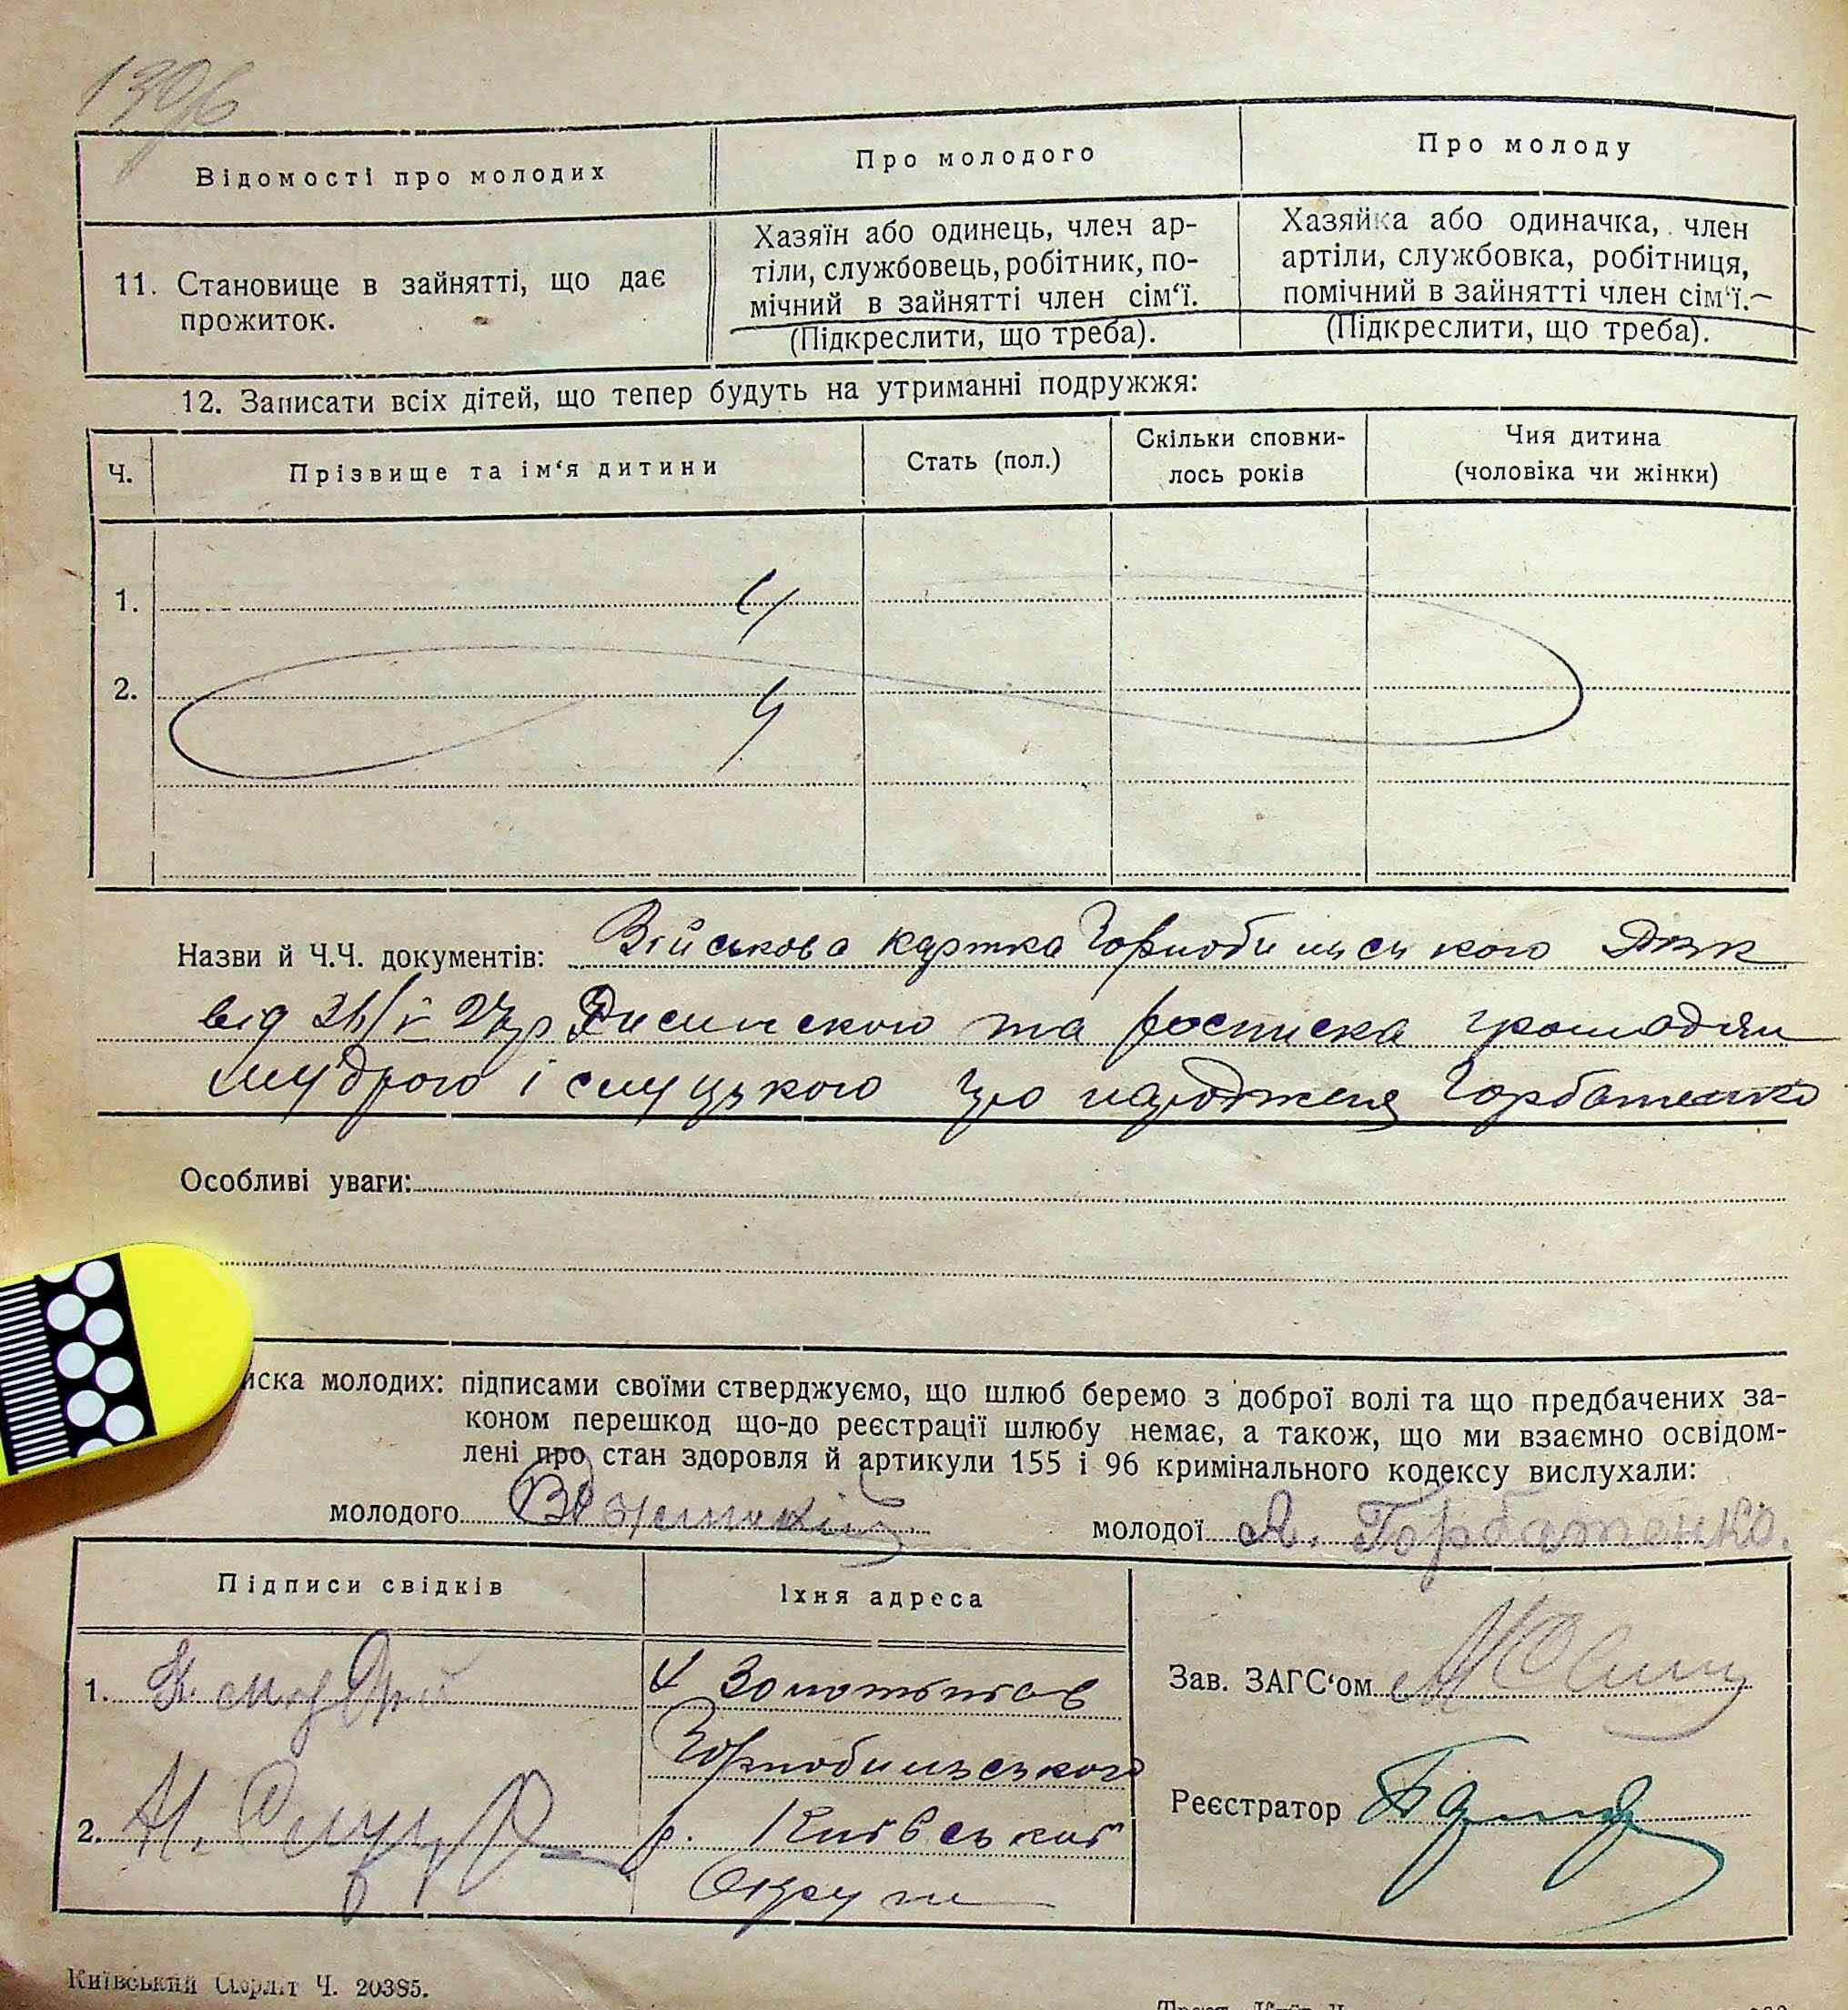 Відомості про молодих
Про молодого
Про молоду
11. Становище в зайнятті, що дає
прожиток.
Хазяїн або одинець, член ар-
тіли, службовець, робітник, по-
мічний в зайнятті член сім'ї.
(Підкреслити, що треба).
Хазяйка або одиначка, член
артіли, службовка, робітниця,
помічний в зайнятті член сім'ї.—
(Підкреслити, що треба).
12. Записати всіх дітей, що тепер будуть на утриманні подружжя:
Ч.
Прізвище та ім'я дитини
Стать (пол.)
Скільки сповни-
лось років
Чия дитина
(чоловіка чи жінки)
1.
2.
Назви й Ч.Ч. документів: Військова картка Чорнобильського
від та росписка громадян
Мудрого і Слуцького про народження Горбатенко
Особливі уваги:
иска молодих: підписами своїми стверджуємо, що шлюб беремо з доброї волі та що предбачених за-
коном перешкод що-до реєстрації шлюбу немає, а також, що ми взаємно освідом-
лені про стан здоровля й артикули 155 і 96 кримінального кодексу вислухали:
молодого
молодої А. Горбатенко.
Підписи свідків
Їхня адреса
1.
Чорнобильського
2.
р. Київської
Округи
Зав. ЗАГС'ом
Реєстратор
Київський Ч. 20385.